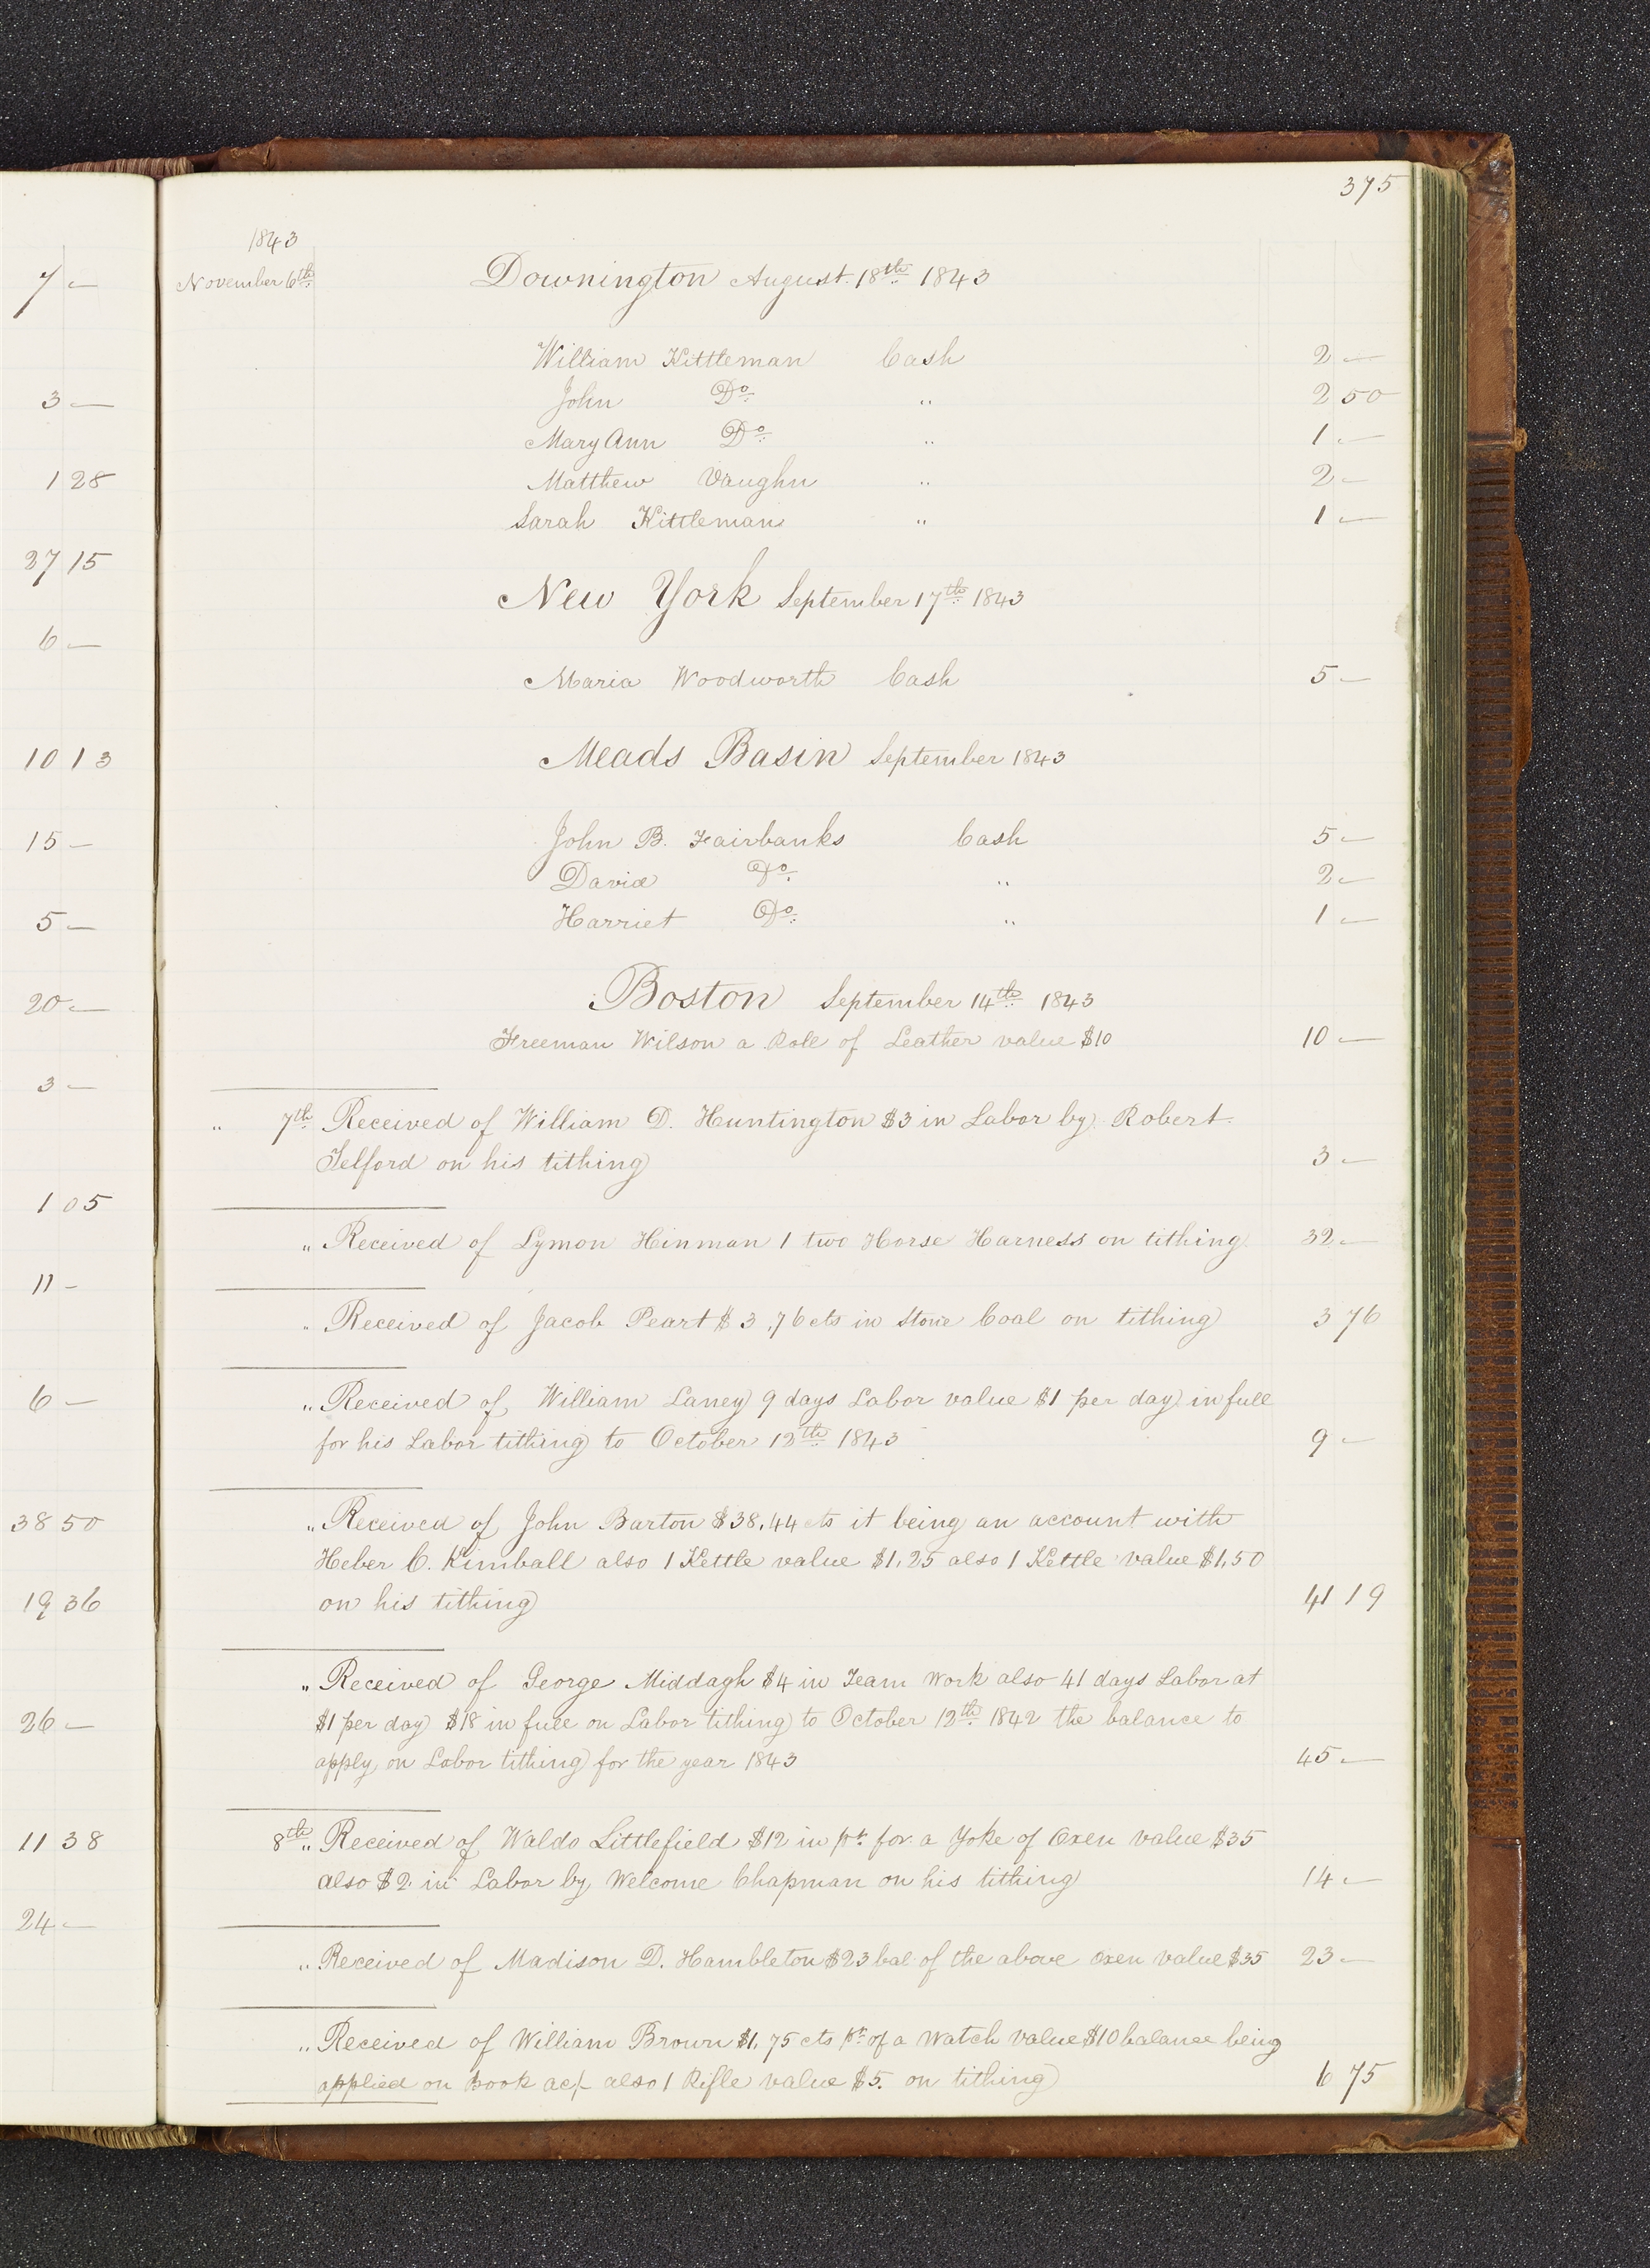 375
1843
November 6th Downington August 18th 1843
William Kittleman Cash 2 —
John Do " 2 50
Mary Ann Do " 1 —
Matthew Vaughn " 2 —
Sarah Kittleman " 1 —
New York September 17th 1843
Maria Woodworth Cash 5 —
Meads Basin September 1843
John B. Fairbanks Cash 5 —
David Do " 2 —
Harriet Do " 1 —
Boston September 14th 1843
Freeman Wilson a Role of Leather value $10 10 —
" 7th Received of William D. Huntington $3 in Labor by Robert
Telford on his tithing 3 —
" Received of Lymon Hinman 1 two Horse Harness on tithing 32 —
" Received of Jacob Peart $3,76 cts in Stone Coal on tithing 3 76
" Received of William Laney 9 days Labor value $1 per day in full
for his Labor tithing to October 12th 1843 9 —
" Received of John Barton $38,44 cts it being an account with
Heber C. Kimball also 1 Kettle value $1,25 also 1 Kettle value $1,50
on his tithing 41 19
" Received of George Middagh $4 in Team Work also 41 days Labor at
$1 per day $18 in full on Labor tithing to October 12th 1842 the balance to
apply on Labor tithing for the year 1843 45 —
8th " Received of Waldo Littlefield $12 in pt for a Yoke of Oxen value $35
also $2 in Labor by Welcome Chapman on his tithing 14 —
" Received of Madison D. Hambleton $23 bal of the above Oxen value $35 23 —
" Received of William Brown $1,75 cts pt of a Watch value $10 balance being
applied on Book ac/- also 1 Rifle value $5. on tithing 6 75
7 —
3 —
1 28
27 15
6 —
10 13
15 —
5 —
20 —
3 —
1 05
11 -
6 —
38 50
19 36
26 —
11 38
24 —